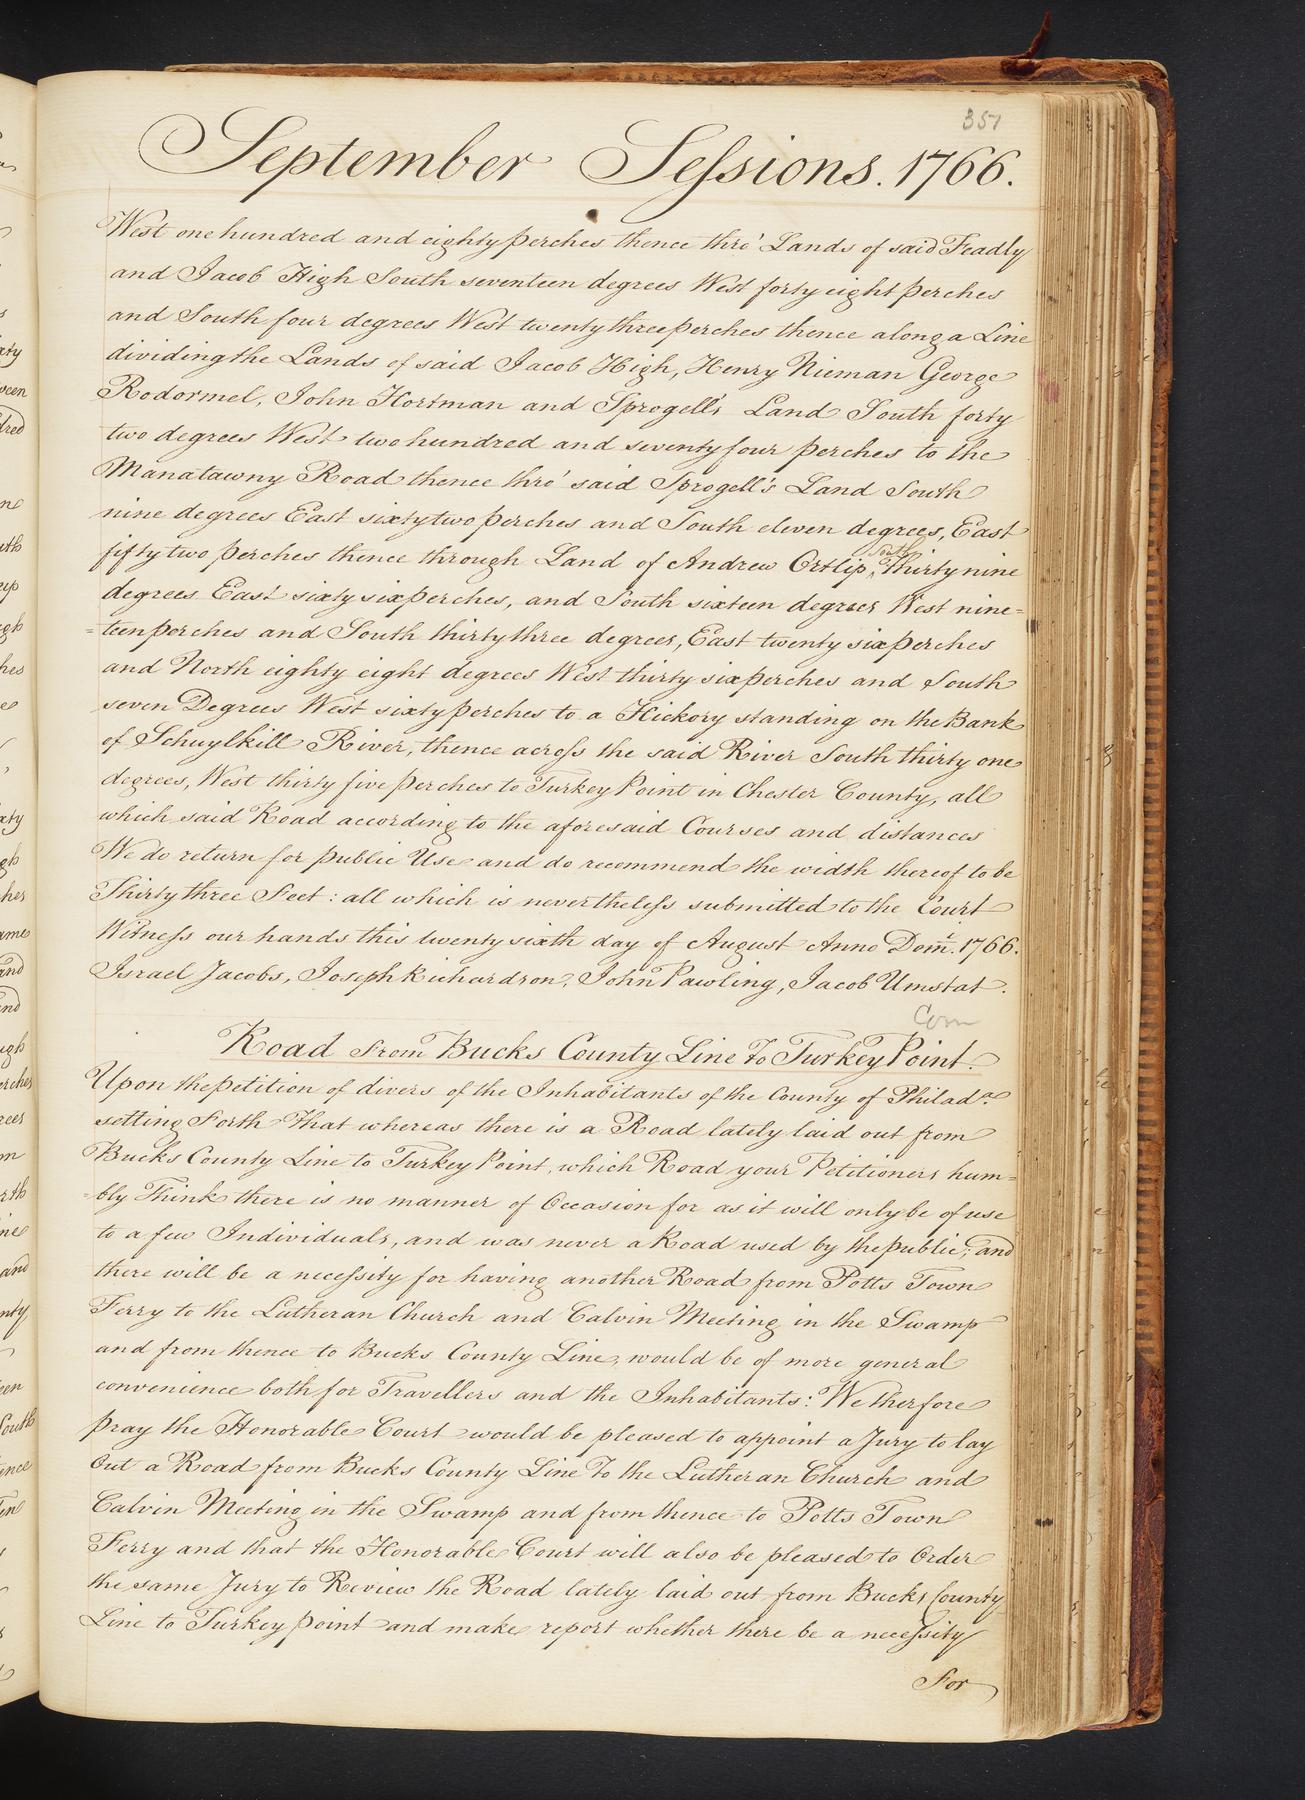 357
September Sessions. 1766.
West one hundred and eighty perches thence thro' Lands of said Feadly
and Jacob High South seventeen degrees West forty eight perches
and South four degrees West twenty three perches thence along a Line
dividing the Lands of said Jacob High, Henry Nieman George
Rodormel, John Hortman and Sprogell's Land South forty
two degrees West two hundred and seventy four perches to the
Manatawny Road thence thro' said Sprogell's Land South
nine degrees East sixty two perches and South eleven degrees, East
fifty two perches thence through Land of Andrew Ortlip, South Thirty nine
degrees East sixty six perches, and South sixteen degrees West nine=
=teen perches and South thirty three degrees, East twenty six perches
and North eighty eight degrees West thirty six perches and South
seven Degrees West sixty perches to a Hickory standing on the Bank
of Schuylkill River, thence across the said River South thirty one
degrees, West thirty five perches to Turkey Point in Chester County, all
which said Road according to the aforesaid Courses and distances
We do return for public Use and do recommend the width thereof to be
Thirty three Feet : all which is nevertheless submitted to the Court
Witness our hands this twenty sixth day of August Anno Domi. 1766.
Israel Jacobs, Joseph Richardson, John Pawling, Jacob Umstat.
Com
Road From Bucks County Line To Turkey Point.
Upon the petition of divers of the Inhabitants of the County of Philada.
setting Forth That whereas there is a Road lately laid out from
Bucks County Line to Turkey Point, which Road your Petitioners hum=
=bly Think there is no manner of Occasion for as it will only be of use
to a few Individuals, and was never a Road used by the public; and
there will be a necessity for having another Road from Potts Town
Ferry to the Lutheran Church and Calvin Meeting in the Swamp
and from thence to Bucks County Line, would be of more general
convenience both for Travellers and the Inhabitants: We therfore
pray the Honorable Court would be pleased to appoint a Jury to lay
Out a Road from Bucks County Line To the Lutheran Church and
Calvin Meeting in the Swamp and from thence to Potts Town
Ferry and that the Honorable Court will also be pleased to Order
the same Jury to Review the Road lately laid out from Bucks County
Line to Turkey point and make report whether there be a necessity
For